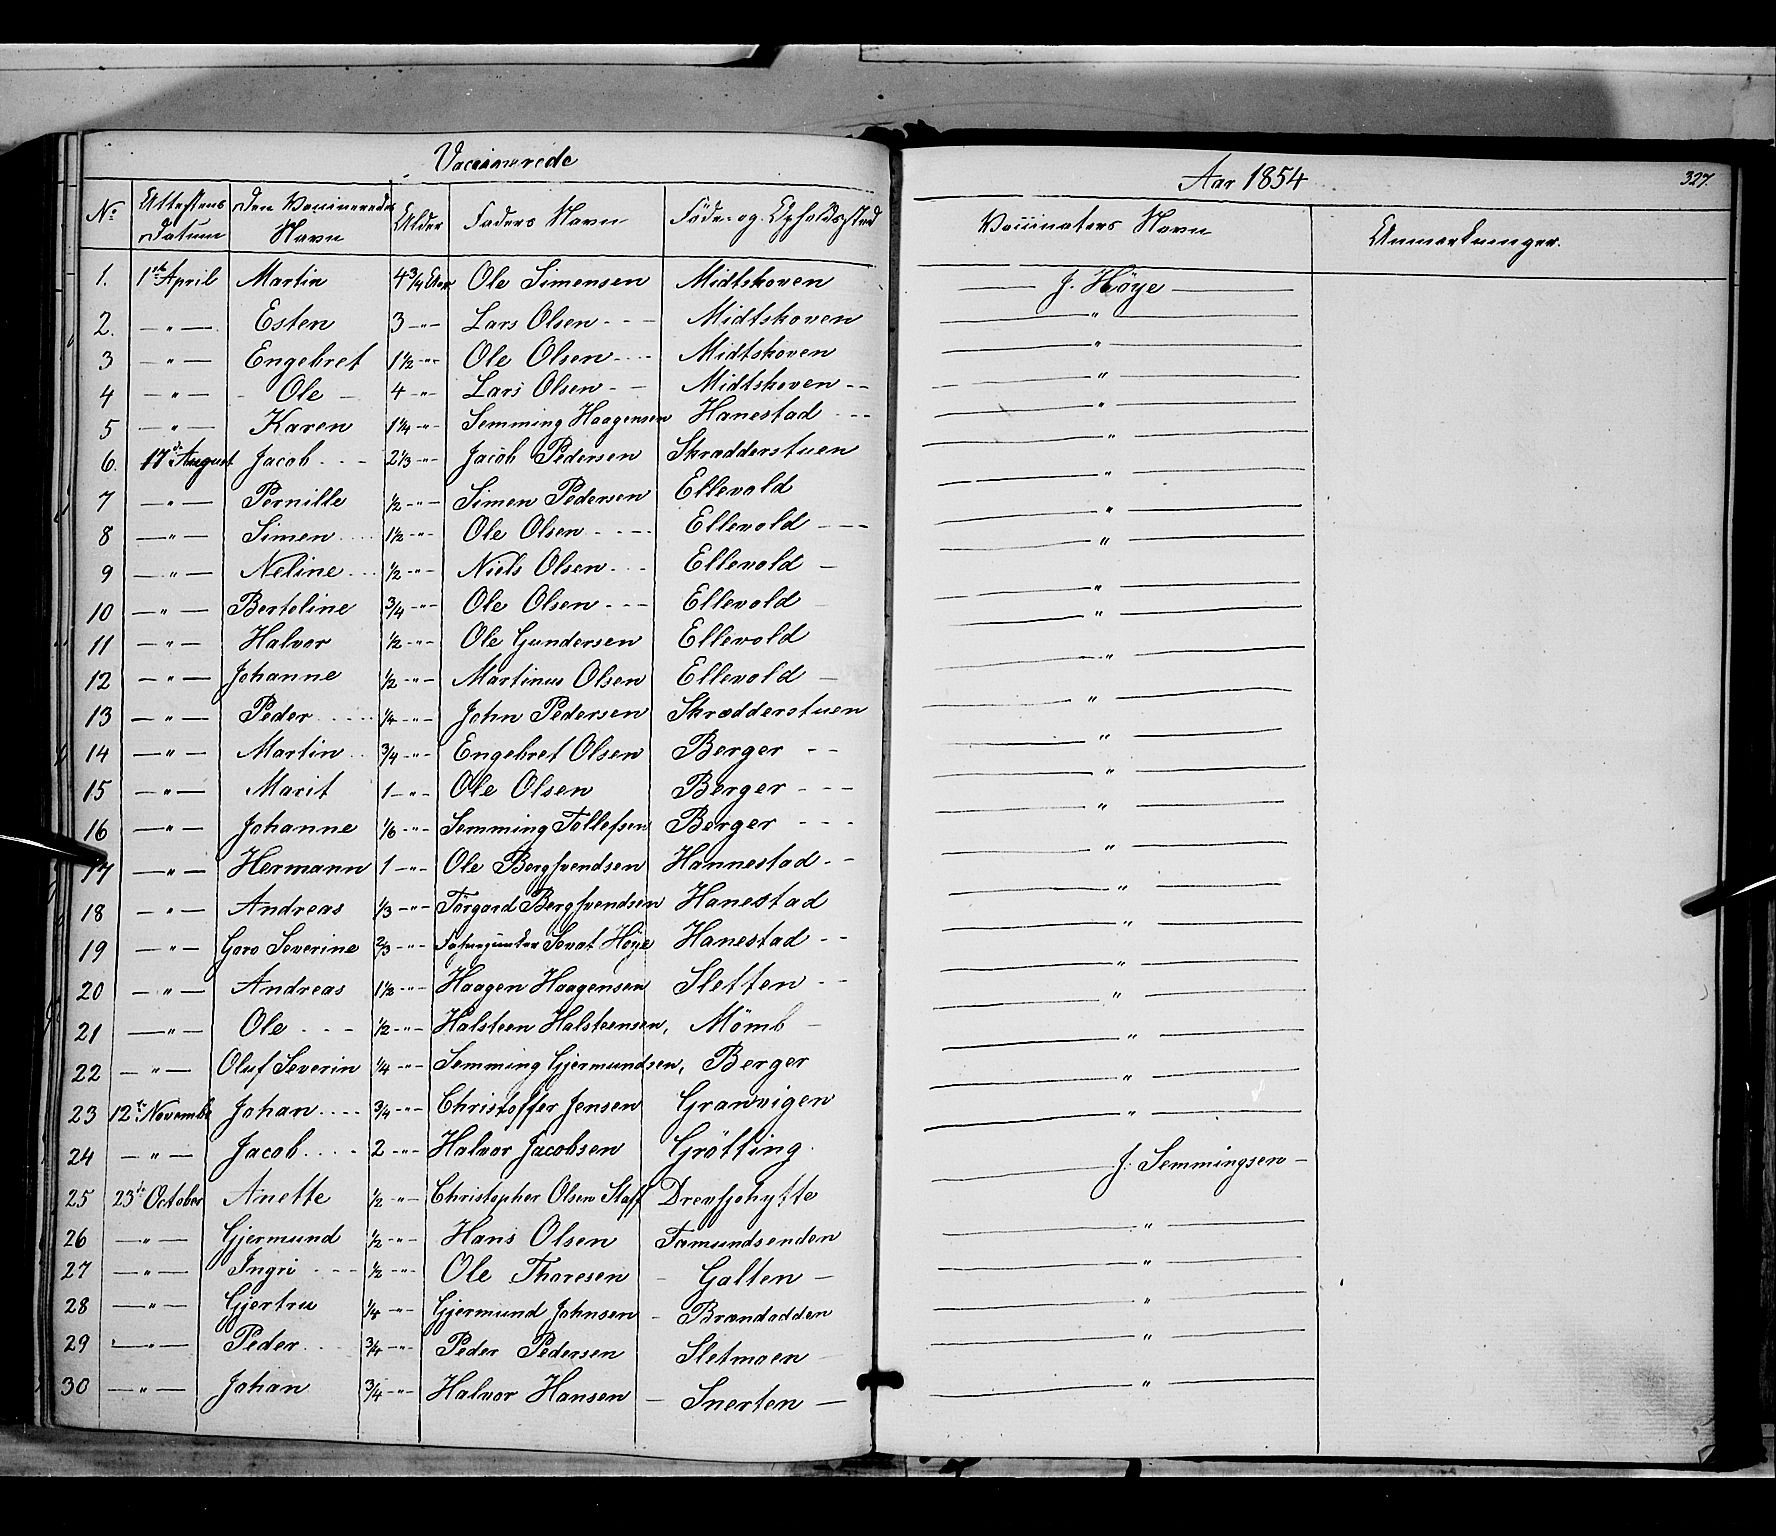 Vaccinerede
Aar 1854
327.
No Attestens Datum Den Vaccineredes Navn Alder Faders Navn Føde- og Opholdssted Vaccinators Navn Anmærkninger.
1. 1ste April Martin 4 3/4 Aar Ole Simensen Midtskoven — J. Höye —
2. — " — Esten 3 - " - Lars Olsen - - - Midtskoven — " —
3 — " — Engebret 1 1/2 - " - Ole Olsen - - - Midtskoven — " —
4 — " — - Ole - 4 - " - Lars Olsen - - Midtskoven - - — " —
5 — " — Karen 1 1/4 - " - Semming Haagensen Hanestad - - - — " —
6. 17de August Jacob - - - 2 1/3 - " - Jacob Pedersen Skrædderstuen — " —
7 — " — Pernille 1/2 - " - Simen Pedersen Ellevold — " —
8 — " — Simen 1 1/2 - " - Ole Olsen - - - - Ellevold - - - — " —
9 — " — Neline - - - 1/2 - " - Niels Olsen - - - Ellevold - — " —
10 — " — Berteline 3/4 - " - Ole Olsen - - - Ellevold — " —
11 — " — Halvor 1/2 - " - Ole Gundersen Ellevold — " —
12 — " — Johanne 1/2 - " - Martinus Olsen Ellevold - — " —
13 — " — Peder - - - 1/4 - " - John Pedersen Skrædderstuen — " —
14 — " — Martin - - 3/4 - " - Engebret Olsen Berger - - — " —
15 — " — Marit 1 - " - Ole Olsen Berger - - - — " —
16 — " — Johanne 1/6 - " - Semming Tollefsen Berger - - - — " —
17 — " — Hermann 1 - " - Ole Bergsvendsen Hannestad - - — " —
18 — " — Andreas 1/3 - " - Torgard Bergsvendsen Hanestad — " —
19 — " — Goro Severine 2/3 - " - Sevat Höye Hanestad - - — " —
20 — " — Andreas 1 1/2 - " - Haagen Haagensen Sletten - - — " —
21 — " — Ole - - - 1/2 - " - Halsteen Halsteensen, Mömb - — " —
22 — " — Oluf Severin 1/4 - " - Semming Gjermundsen, Berger — " —
23 12te Novembr Johan - - - - 3/4 - " - Christoffer Jensen Granvigen — " —
24 — " — Jacob - - - - 2 - " - Halvor Jacobsen Grötting. — J. Semmingsen —
25 23de October Anette 1/2 - " - Christopher Olsen Staff Drevsjohytte — " —
26 — " — Gjermund 1/2 - " - Hans Olsen Fæmundsenden — " —
27 — " — Ingri - - - 1/2 - " - Ole Thoresen - Galten - — " —
28 — " — Gjertru 1/4 - " - Gjermund Johnsen - Brændodden — " —
29 — " — Peder - - - 3/4 - " - Peder Pedersen Sletmoen - — " —
30 — " — Johan 3/4 - " - Halvor Hansen - Snerten - — " —